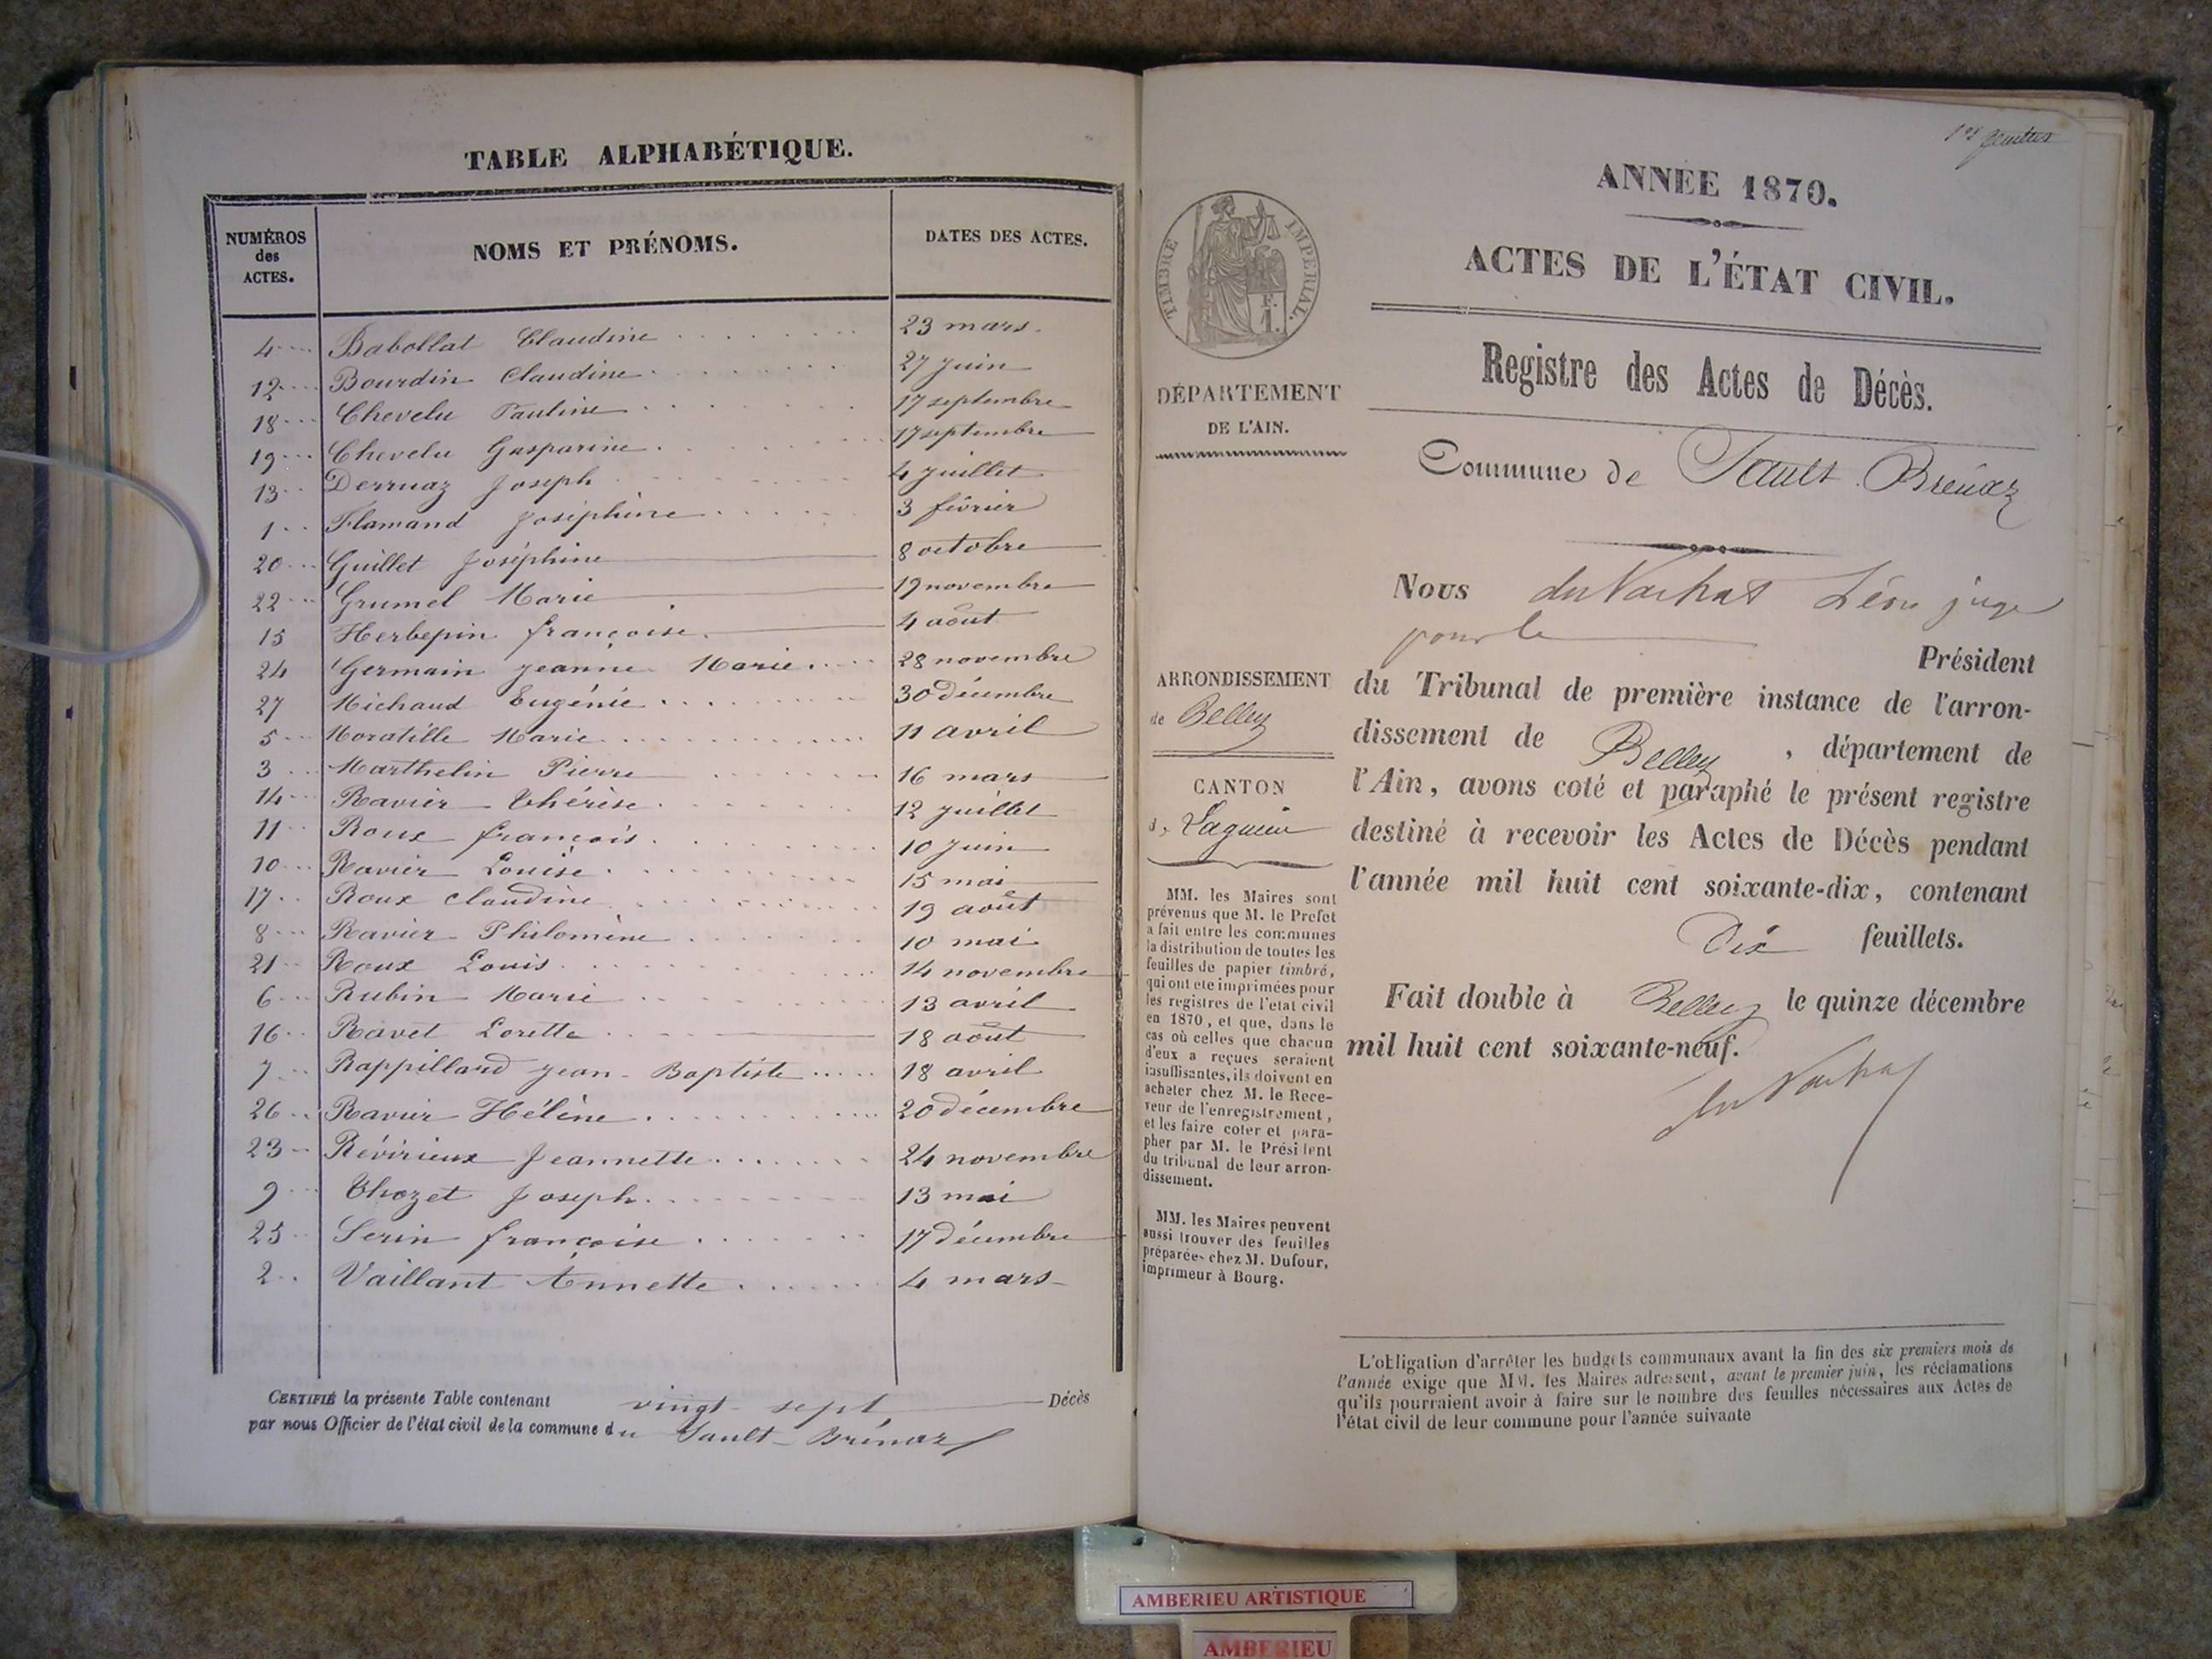 TABLE ALPHABÉTIQUE.
NUMÉROS des ACTES. NOMS ET PRÉNOMS. DATES DES ACTES.
4 Babollat Claudine 23 mars
12 Bourdin Claudine 27 juin
18 Chevelu Pauline 17 septembre
19 Chevelu Gasparine 17 septembre
13 Derruaz Joseph 4 juillet
1 Flamand Joséphine 3 février
20 Guillet Joséphine 8 octobre
22 Grumel Marie 19 novembre
15 Herbepin françoise 4 août
24 Germain jeanne Marie 28 novembre
27 Michaud Eugénie 30 décembre
5 Moratille Marie 11 avril
3 Marthelin Pierre 16 mars
14 Ravier Thérèse 12 juillet
11 Roux françois 10 juin
10 Ravier Louise 15 mai
17 Roux Claudine 19 août
8 Ravier Philomène 10 mai
21 Roux Louis 14 novembre
6 Rubin Marie 13 avril
16 Ravet Lorette 18 août
7 Rappilland jean-Baptiste 18 avril
26 Ravier Hélène 20 décembre
23 Révirieux Jeannette 24 novembre
9 Thozet Joseph 13 mai
25 Serin françoise 17 décembre
2 Vaillant Annette 4 mars
CERTIFIÉ la présente Table contenant vingt-sept Décès
par nous Officier de l'état civil de la commune du Sault-Brénaz
ANNÉE 1870.
ACTES DE L'ÉTAT CIVIL.
Registre des Actes de Décès.
Commune de Sault-Brénaz
TIMBRE IMPERIAL.
F.
1.
DÉPARTEMENT
DE L'AIN.
ARRONDISSEMENT
de Belley
CANTON
de Lagnieu
MM. les Maires sont
prévenus que M. le Prefet
a fait entre les communes
la distribution de toutes les
feuilles de papier timbré,
qui ont été imprimées pour
les registres de l'état civil
en 1870, et que, dans le
cas où celles que chacun
d'eux a reçues seraient
insuffisantes, ils doivent en
acheter chez M. le Rece-
veur de l'enregistrement,
et les faire coter et para-
pher par M. le Président
du tribunal de leur arron-
dissement.
MM. les Maires peuvent
aussi trouver des feuilles
préparées chez M. Dufour,
imprimeur à Bourg.
Nous du Vachat Léon juge
pour le
Président
du Tribunal de première instance de l'arron-
dissement de Belley, département de
l'Ain, avons coté et paraphé le présent registre
destiné à recevoir les Actes de Décès pendant
l'année mil huit cent soixante-dix, contenant
Dix feuillets.
Fait double à Belley le quinze décembre
mil huit cent soixante-neuf.
du Vachat
L'obligation d'arrêter les budgets communaux avant la fin des six premiers mois de
l'année exige que MM. les Maires adressent, avant le premier juin, les réclamations
qu'ils pourraient avoir à faire sur le nombre des feuilles nécessaires aux Actes de
l'état civil de leur commune pour l'année suivante
AMBERIEU ARTISTIQUE
AMBERIEU